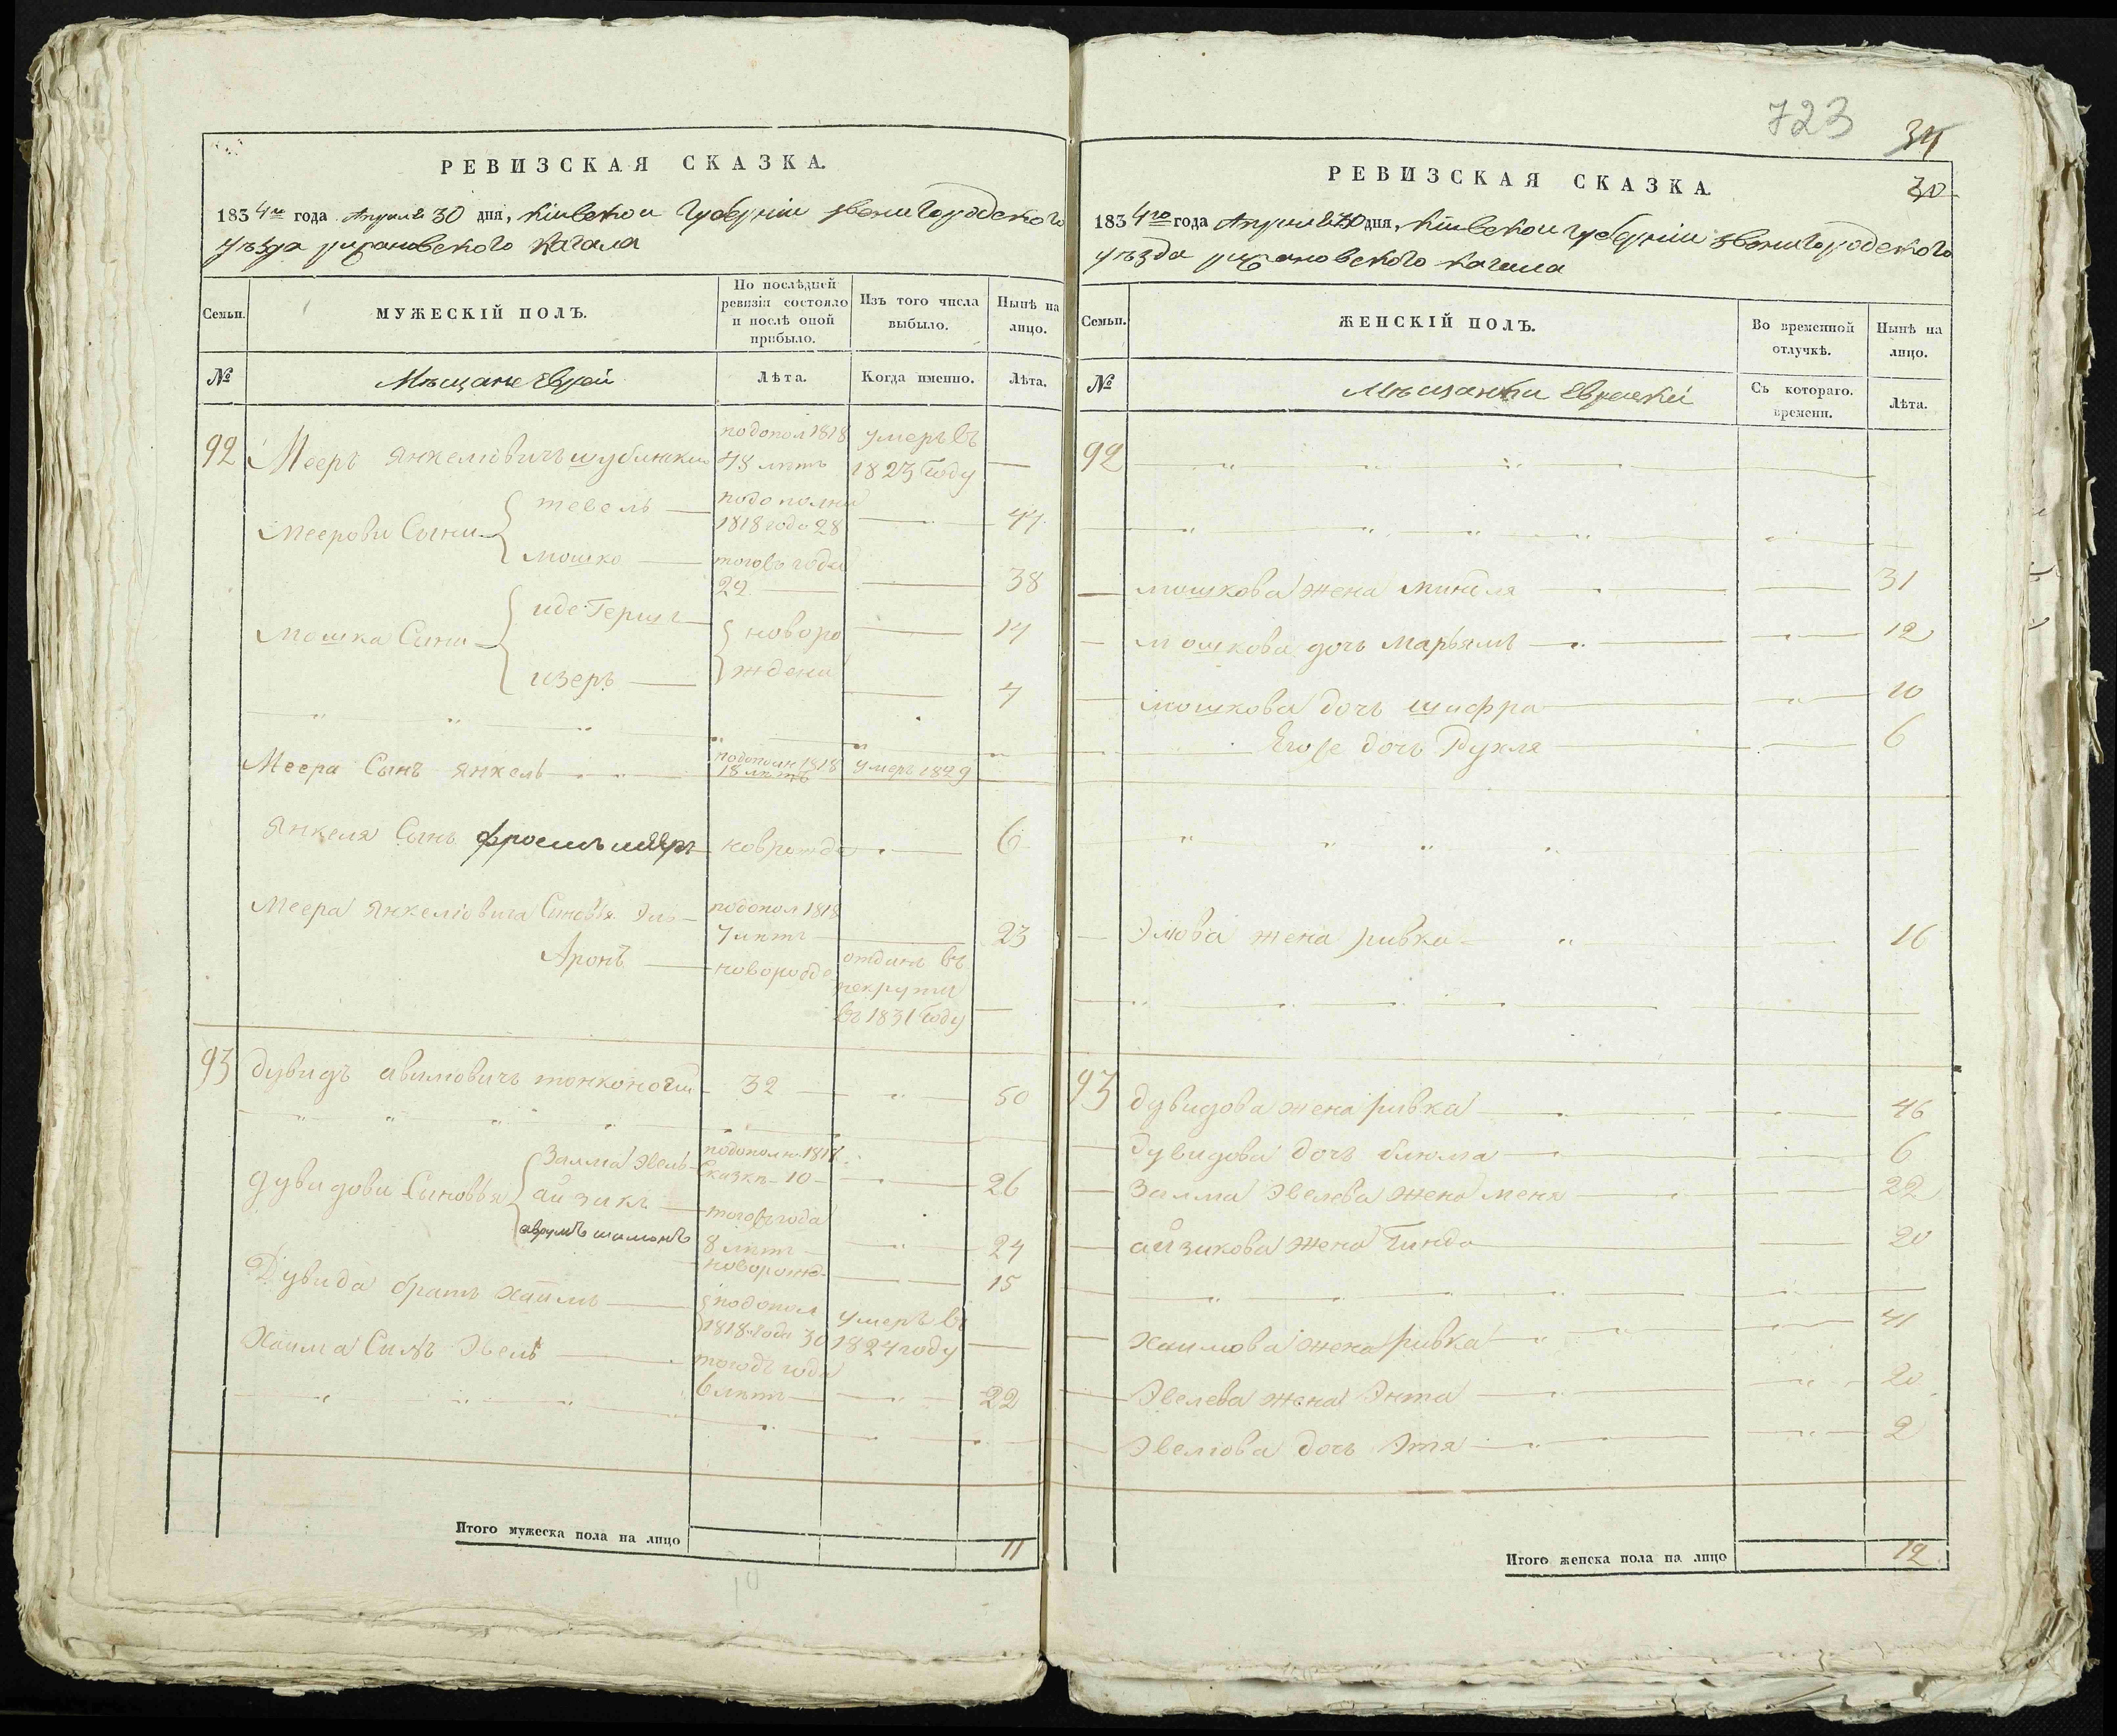 РЕВИЗСКАЯ СКАЗКА.
1834го года Апреля 30 дня, Кіевской Губерніи Звенигородского
уѣзда рыжановского Кагала
Семьи. МУЖЕСКІЙ ПОЛЪ. По послѣдней ревизіи состояло и послѣ оной прибыло. Изъ того числа выбыло. Нынѣ на лицо.
№ Мѣщане Евреи Лѣта. Когда именно. Лѣта.
92 Мееръ Янкелювичъ шубинский подопол 1818 48 лѣтъ умеръ въ 1823 году —
Меерови Сыни тевель — подополни 1818 года 28 — 44
мошко — тоговъ года 22 — 38
Мошка Сыни иде Гершг — новорождени — 14
изеръ — — 4
Меера Сынъ Янкель — подополн 1818 18 лѣтъ умеръ 1829
Янкеля Сынъ фроимъ мееръ новрожде — 6
Меера Янкелювича Синовья Эль — подопол 1818 7 лѣтъ — 23
Аронъ — новорожде отданъ въ рекруты въ 1831 году —
93 Дувидъ авиловичъ тонконогий 32 — 50
Дувидови Сыновья Залма Эвель подополн 1818 Сказкѣ 10 — 26
айзикъ — тоговъ года 8 лѣтъ — 24
аврумъ шимонъ новорожд — 15
Дувида братъ Хаимъ — подопол 1818 года 30 умеръ въ 1824 году —
Хаима Синъ Эвель — тоговъ года 6 лѣтъ — 22
Итого мужеска пола на лицо 11
10
723
34
30
РЕВИЗСКАЯ СКАЗКА.
1834го года Апреля 30 дня, Кіевской губерніи Звенигородского
уѣзда рыжановского кагала
Семьи. ЖЕНСКІЙ ПОЛЪ. Во временной отлучкѣ. Нынѣ на лицо.
№ Мѣщанки Еврейскіи Съ котораго. времени. Лѣта.
92
мошкова жена Миндля — 31
мошкова дочь Марьямъ — 12
мошкова дочь шифра 10
Его же дочь Рухля 6
Элюва жена ривка — 16
93 Дувидова жена ривка — 46
Дувидова дочь блюма — 6
Залма Эвелева жена Меня — 22
айзикова жена Гинда 20
Хаимова жена ривка — 41
Эвелева жена Энта — 20
Эвелюва дочь Этя — 2
Итого женска пола на лицо 12